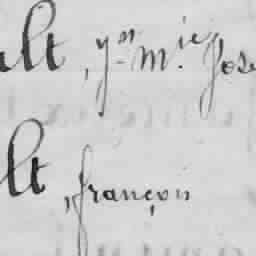 lt, yon m.ie Jose
lt, françois